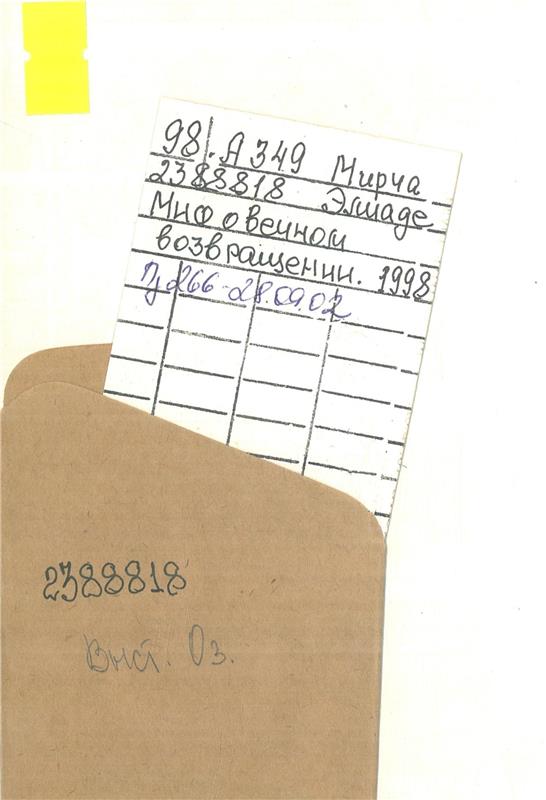 98. А 349 Мирча
2388818 Элиаде
Миф о вечном
возвращении. 1998
266-28.09.02
2388818
Выст. Оз.